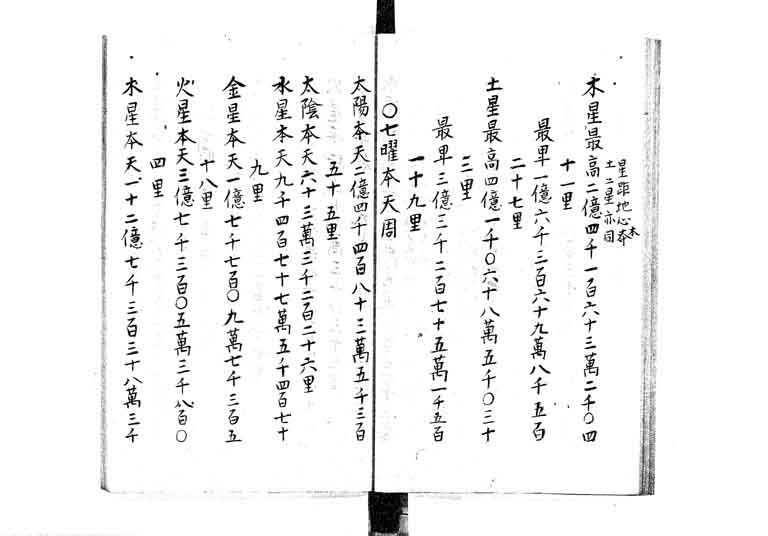 星距地心本
土二星亦同
木星最高二億四千一百六十三萬二千〇四
十一里
最卑一億六千三百六十九萬八千五百
二十七里
土星最高四億一千〇六十八萬五千〇三十
三里
最卑三億三千二百七十五萬一千五百
一十九里
〇七曜本天周
太陽本天二億四千四百八十三萬五千三百
五十五里
太陰本天六十三萬三千二百二十六里
水星本天九千四百七十七萬五千四百七十
九里
金星本天一億七千七百〇九萬七千三百五
十八里
火星本天三億七千三百〇五萬三千八百〇
四里
木星本天一十二億七千三百三十八萬三千